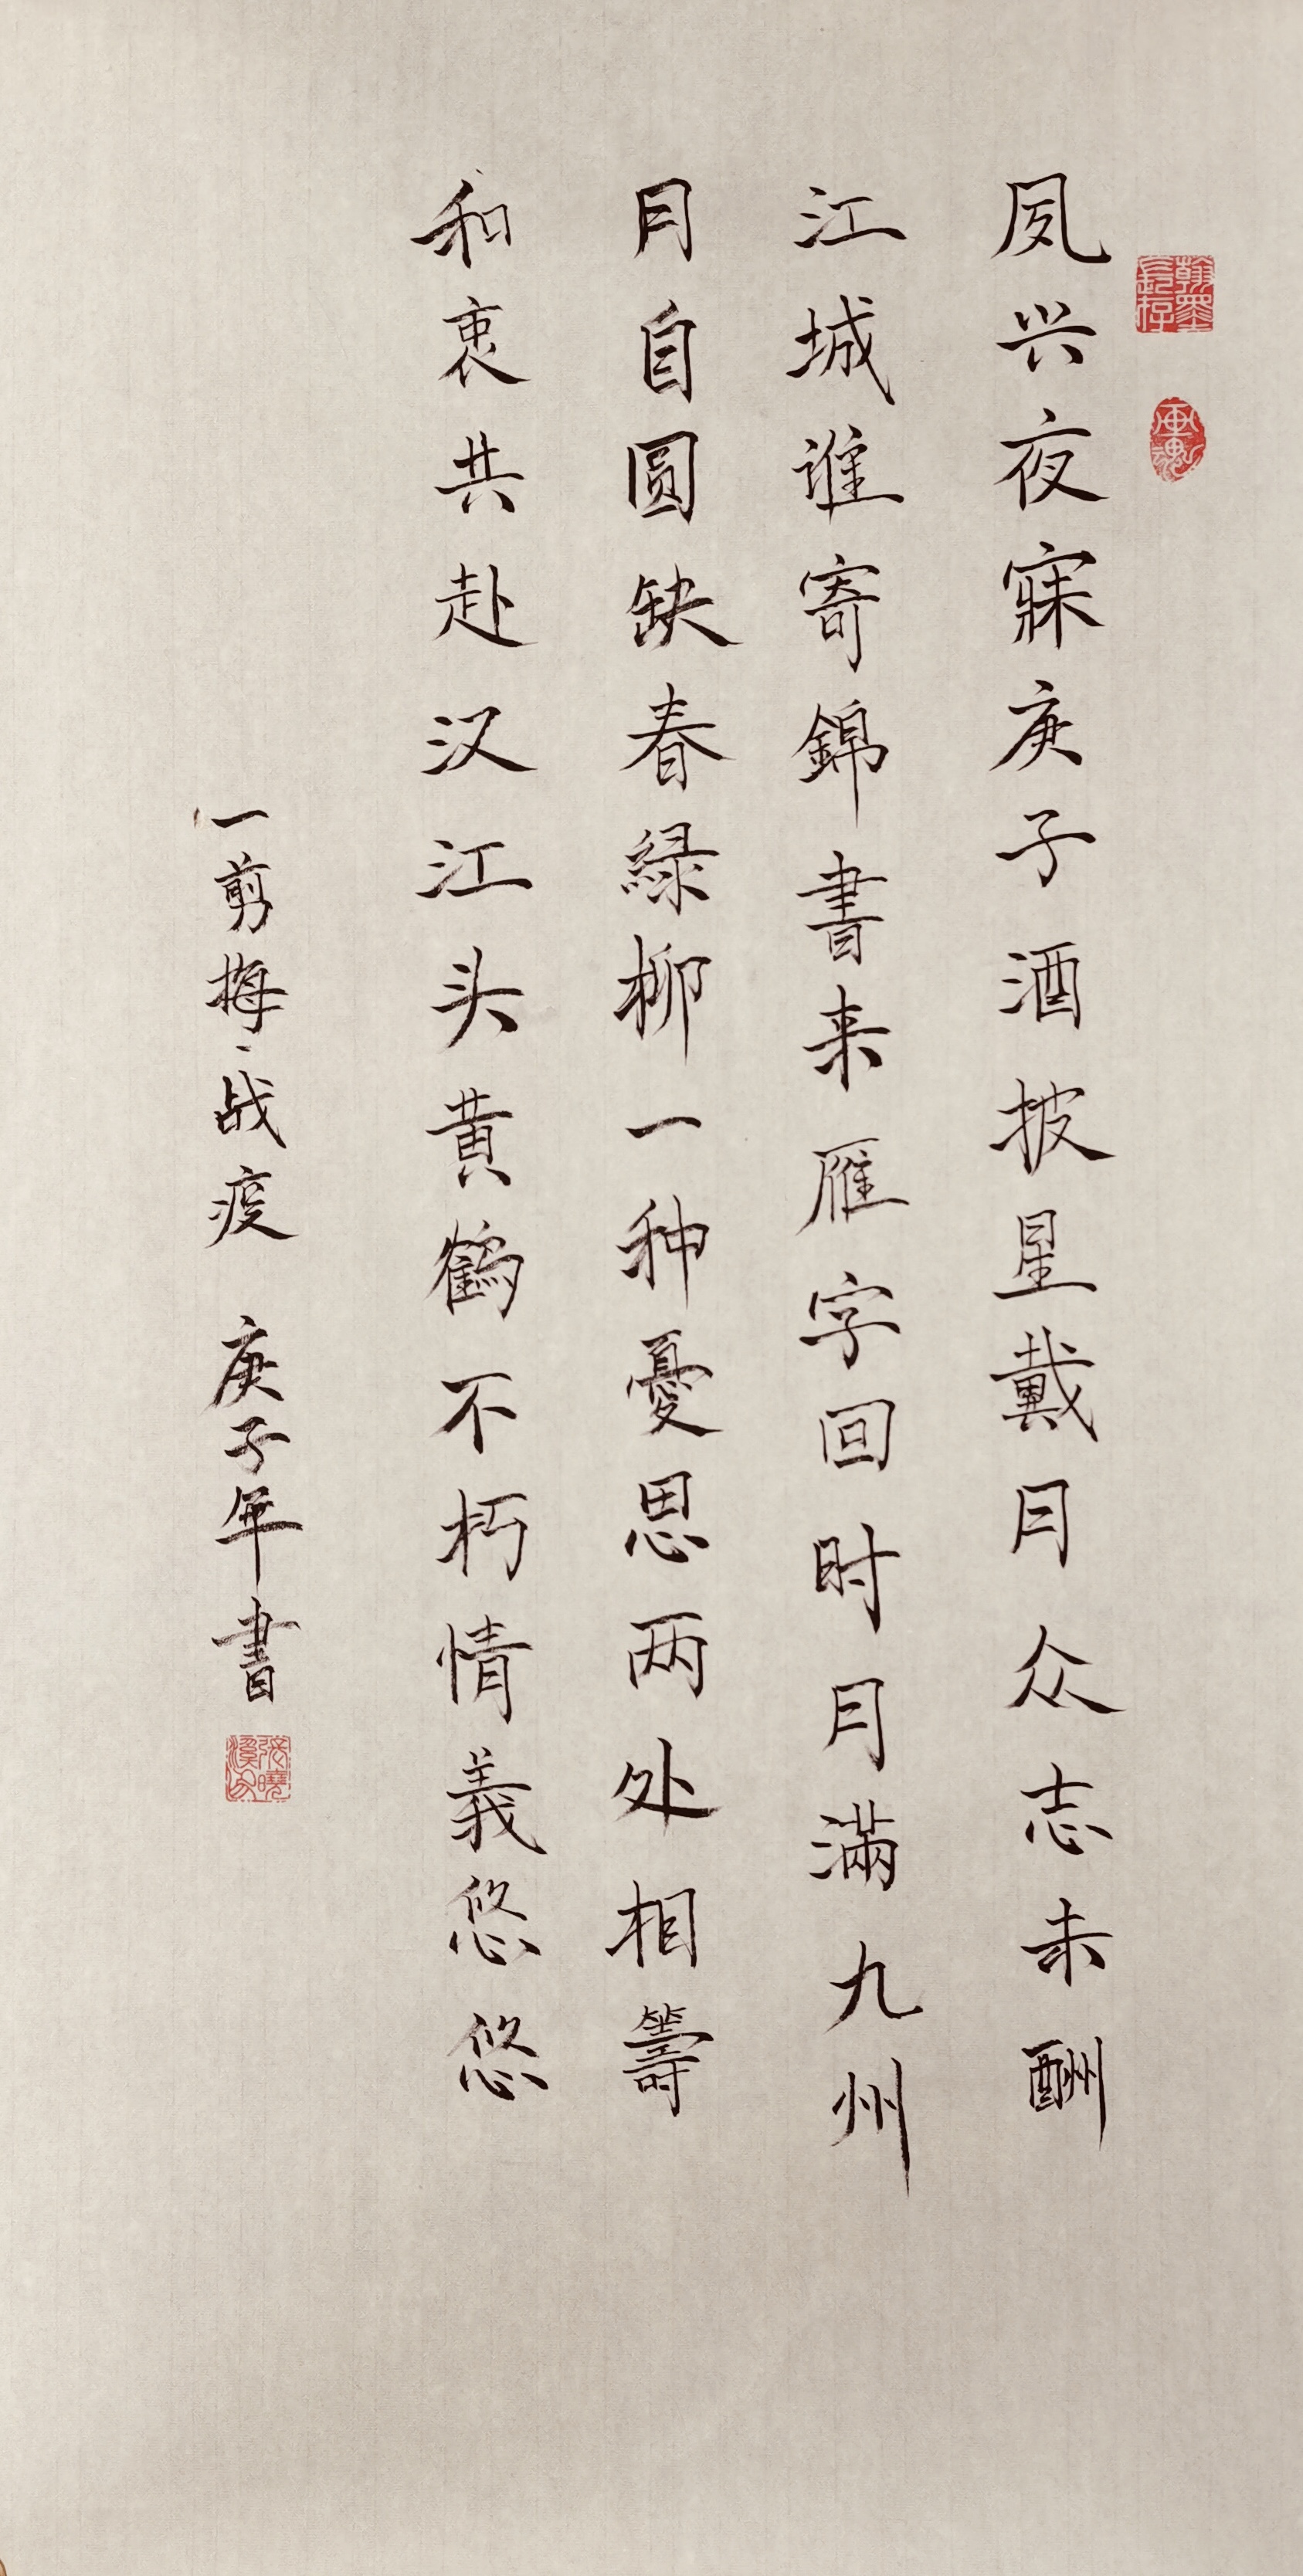 夙兴夜寐庚子酒披星戴月众志未酬
江城谁寄錦書来雁字回时月满九州
月自圆缺春緑柳一种憂思两处相籌
和衷共赴汉江头黄鹤不朽情義悠悠
一剪梅·战疫 庚子年書
翰墨長存